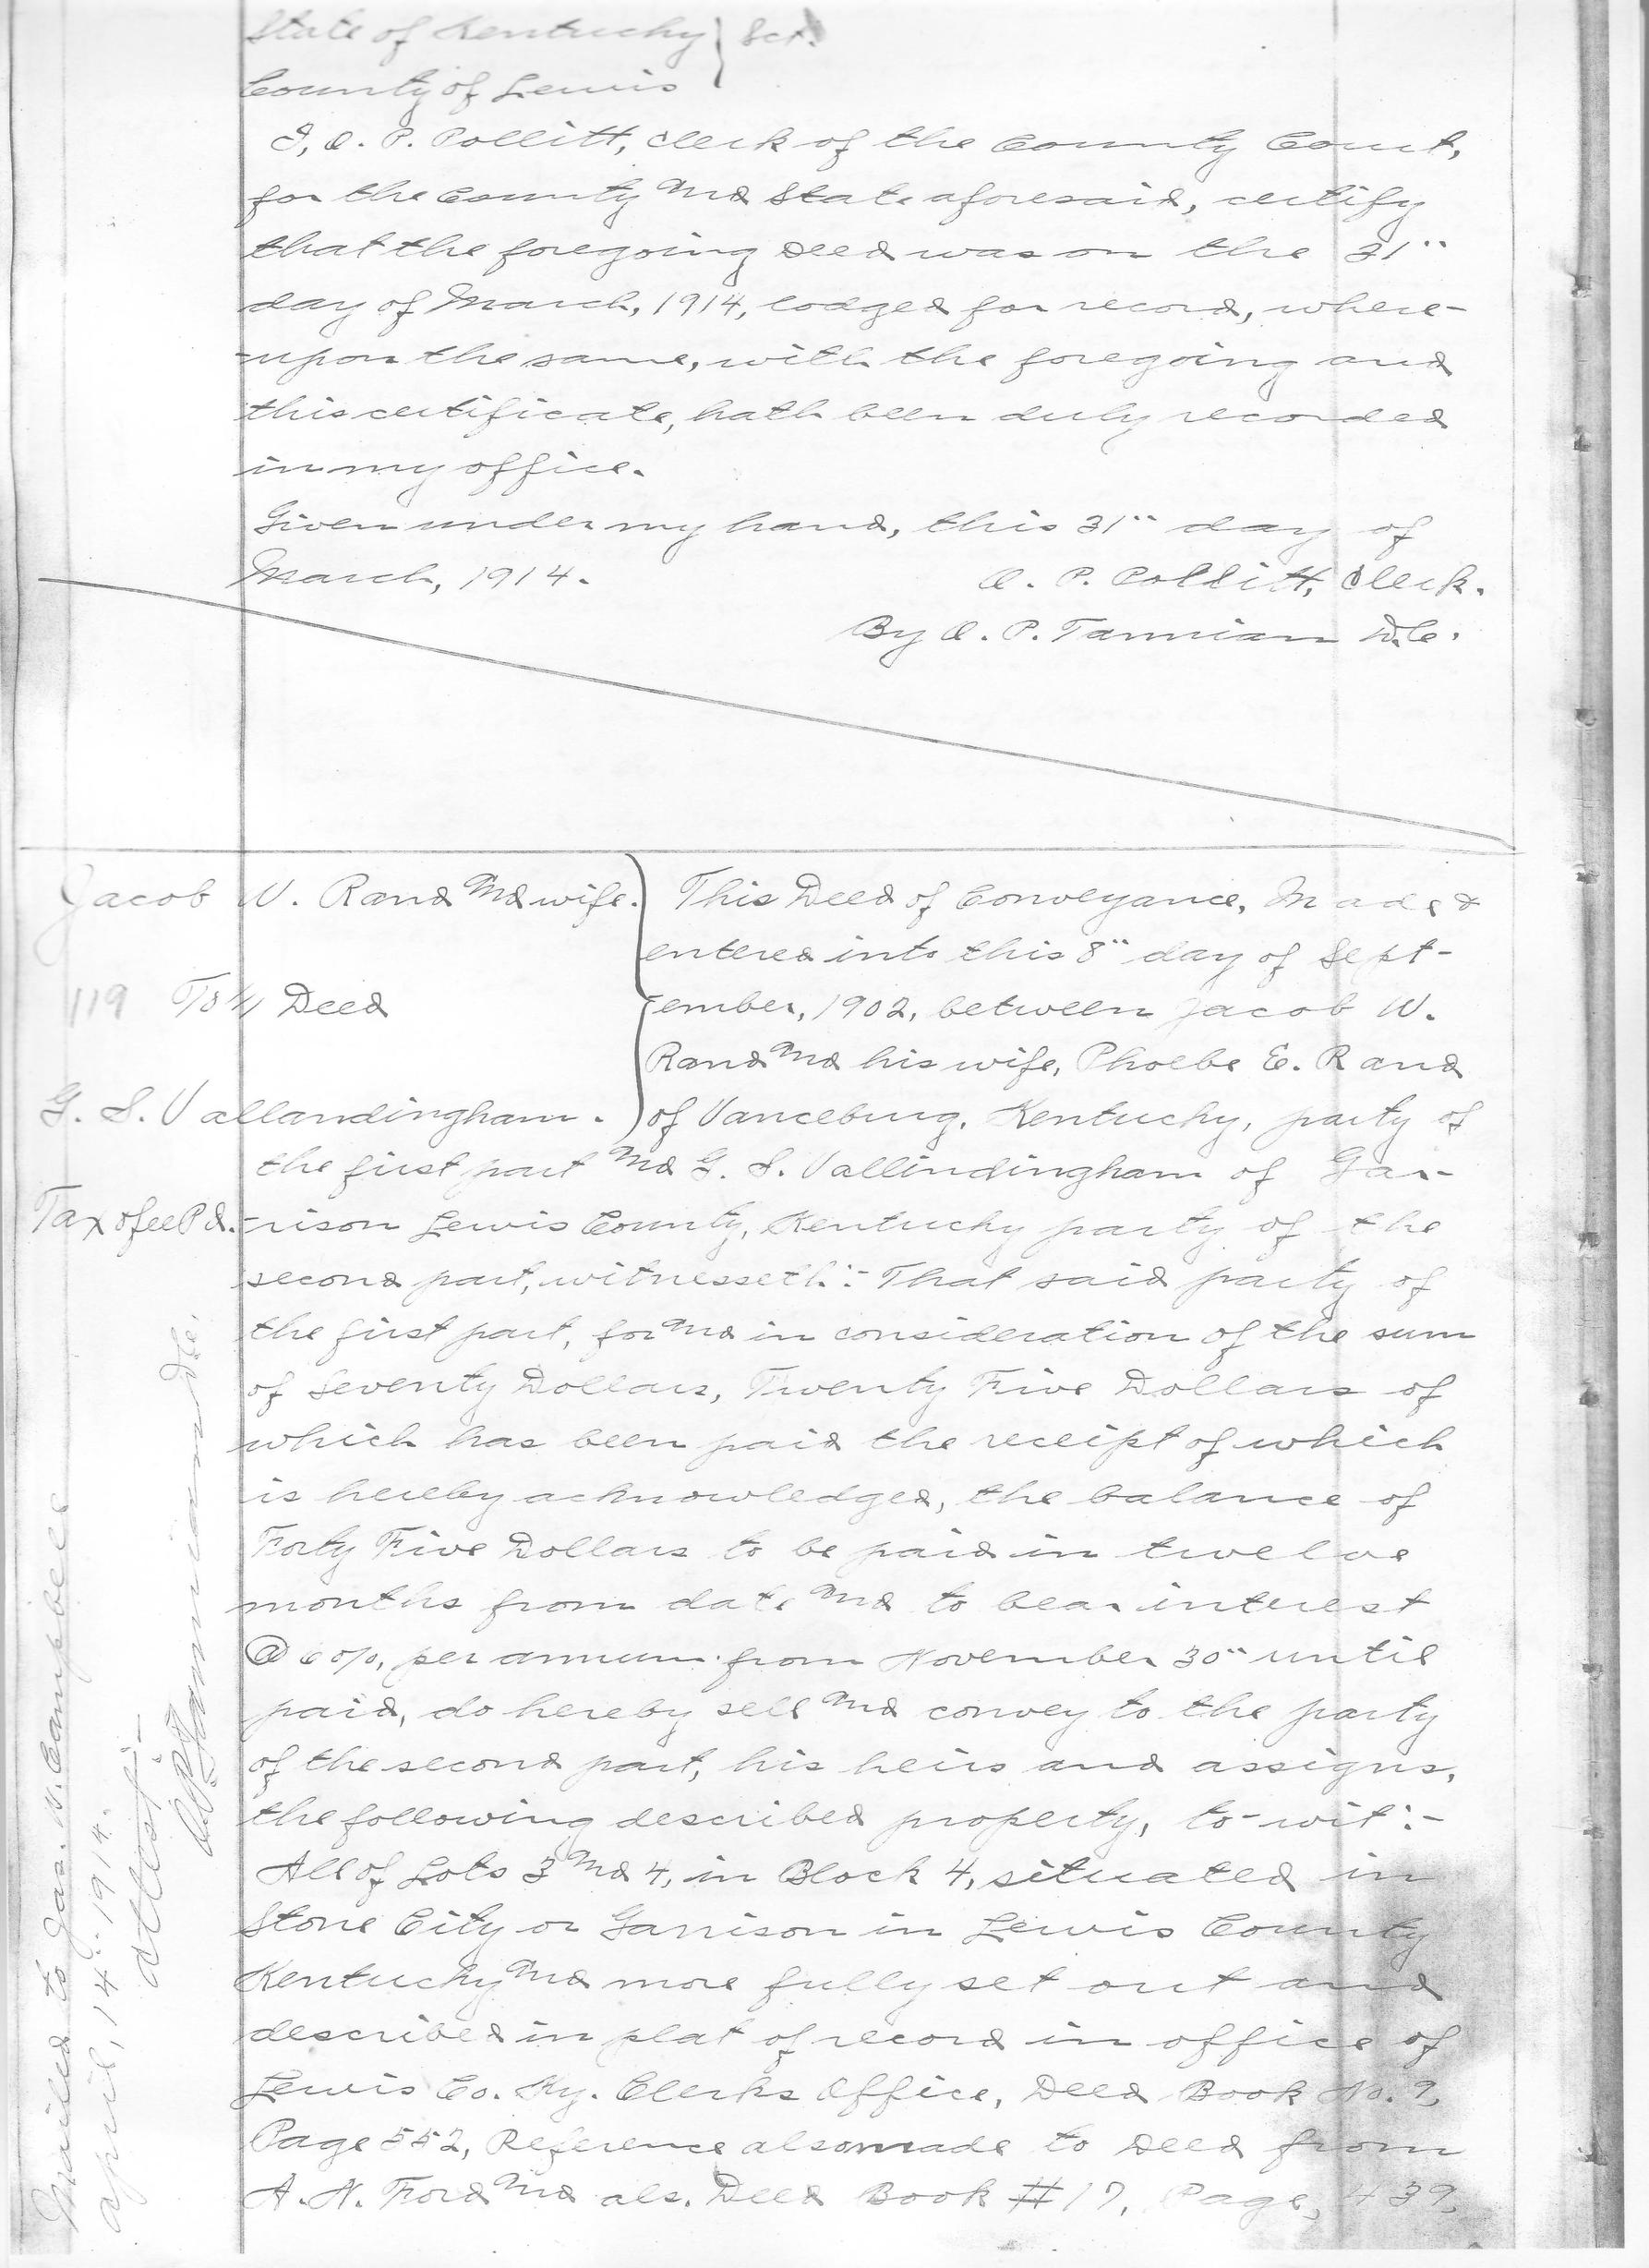 State of Kentucky } Sct.
County of Lewis
I, O. P. Pollitt, Clerk of the County Court,
for the County and State aforesaid, certify
that the foregoing Deed was on the 31"
day of March, 1914, lodged for record, where-
-upon the same, with the foregoing and
this certificate, hath been duly recorded
in my office.
Given under my hand, this 31" day of
March, 1914.
O. P. Pollitt, Clerk.
By O. P. Tannian D.C.
Jacob W. Rand and wife.
119 To // Deed
G. S. Vallandingham.
This Deed of Conveyance, Made &
entered into this 8" day of Sept-
ember, 1902, between Jacob W.
Rand and his wife, Phoebe E. Rand
of Vanceburg, Kentucky, party of
the first part and G. S. Vallindingham of Gar-
Tax & fee Pd.
-rison Lewis County, Kentucky party of the
second part, witnesseth:- That said party of
the first part, for and in consideration of the sum
of Seventy Dollars, Twenty Five Dollars of
which has been paid the receipt of which
is hereby acknowledged, the balance of
Forty Five Dollars to be paid in twelve
months from date and to bear interest
@ 6%, per annum from November 30" until
paid, do hereby sell and convey to the party
of the second part, his heirs and assigns,
the following described property, to-wit:-
All of Lots 3 and 4, in Block 4, situated in
Stone City or Garrison in Lewis County
Kentucky and more fully set out and
described in plat of record in office of
Lewis Co. Ky. Clerks Office, Deed Book No. 9,
Page 552, Reference also made to Deed from
A. N. Ford and als. Deed Book #17, Page, 439,
Mailed to Jas. W. Campbell
April, 14".. 1914.
Attest:-
O. P. Tannian D.C.